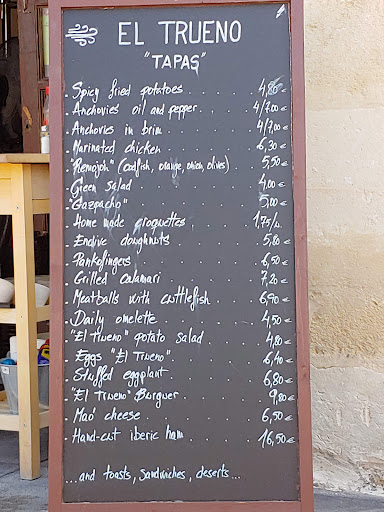 EL TRUENO
"TAPAS"
Spicy fried potatoes 4,80€
Anchovies oil and pepper 4/7,00€
Anchovies in brine 4/7,00€
Marinated chicken 6,30€
"Remojón" (codfish, orange, onion, olives) 5,50€
Green salad 4,00€
"Gazpacho" 5,00€
Home made croquettes 1,75/u.
Endive doughnuts 5,80€
Pankofingers 6,50€
Grilled calamari 7,20€
Meatballs with cuttlefish 6,90€
Daily omelette 4,50€
"El Trueno" potato salad 4,80€
Eggs "El Trueno" 6,40€
Stuffed eggplant 6,80€
"El Trueno" Burguer 9,80€
Mao' cheese 6,50€
Hand-cut iberic ham 16,50€
...and toasts, sandwiches, deserts...